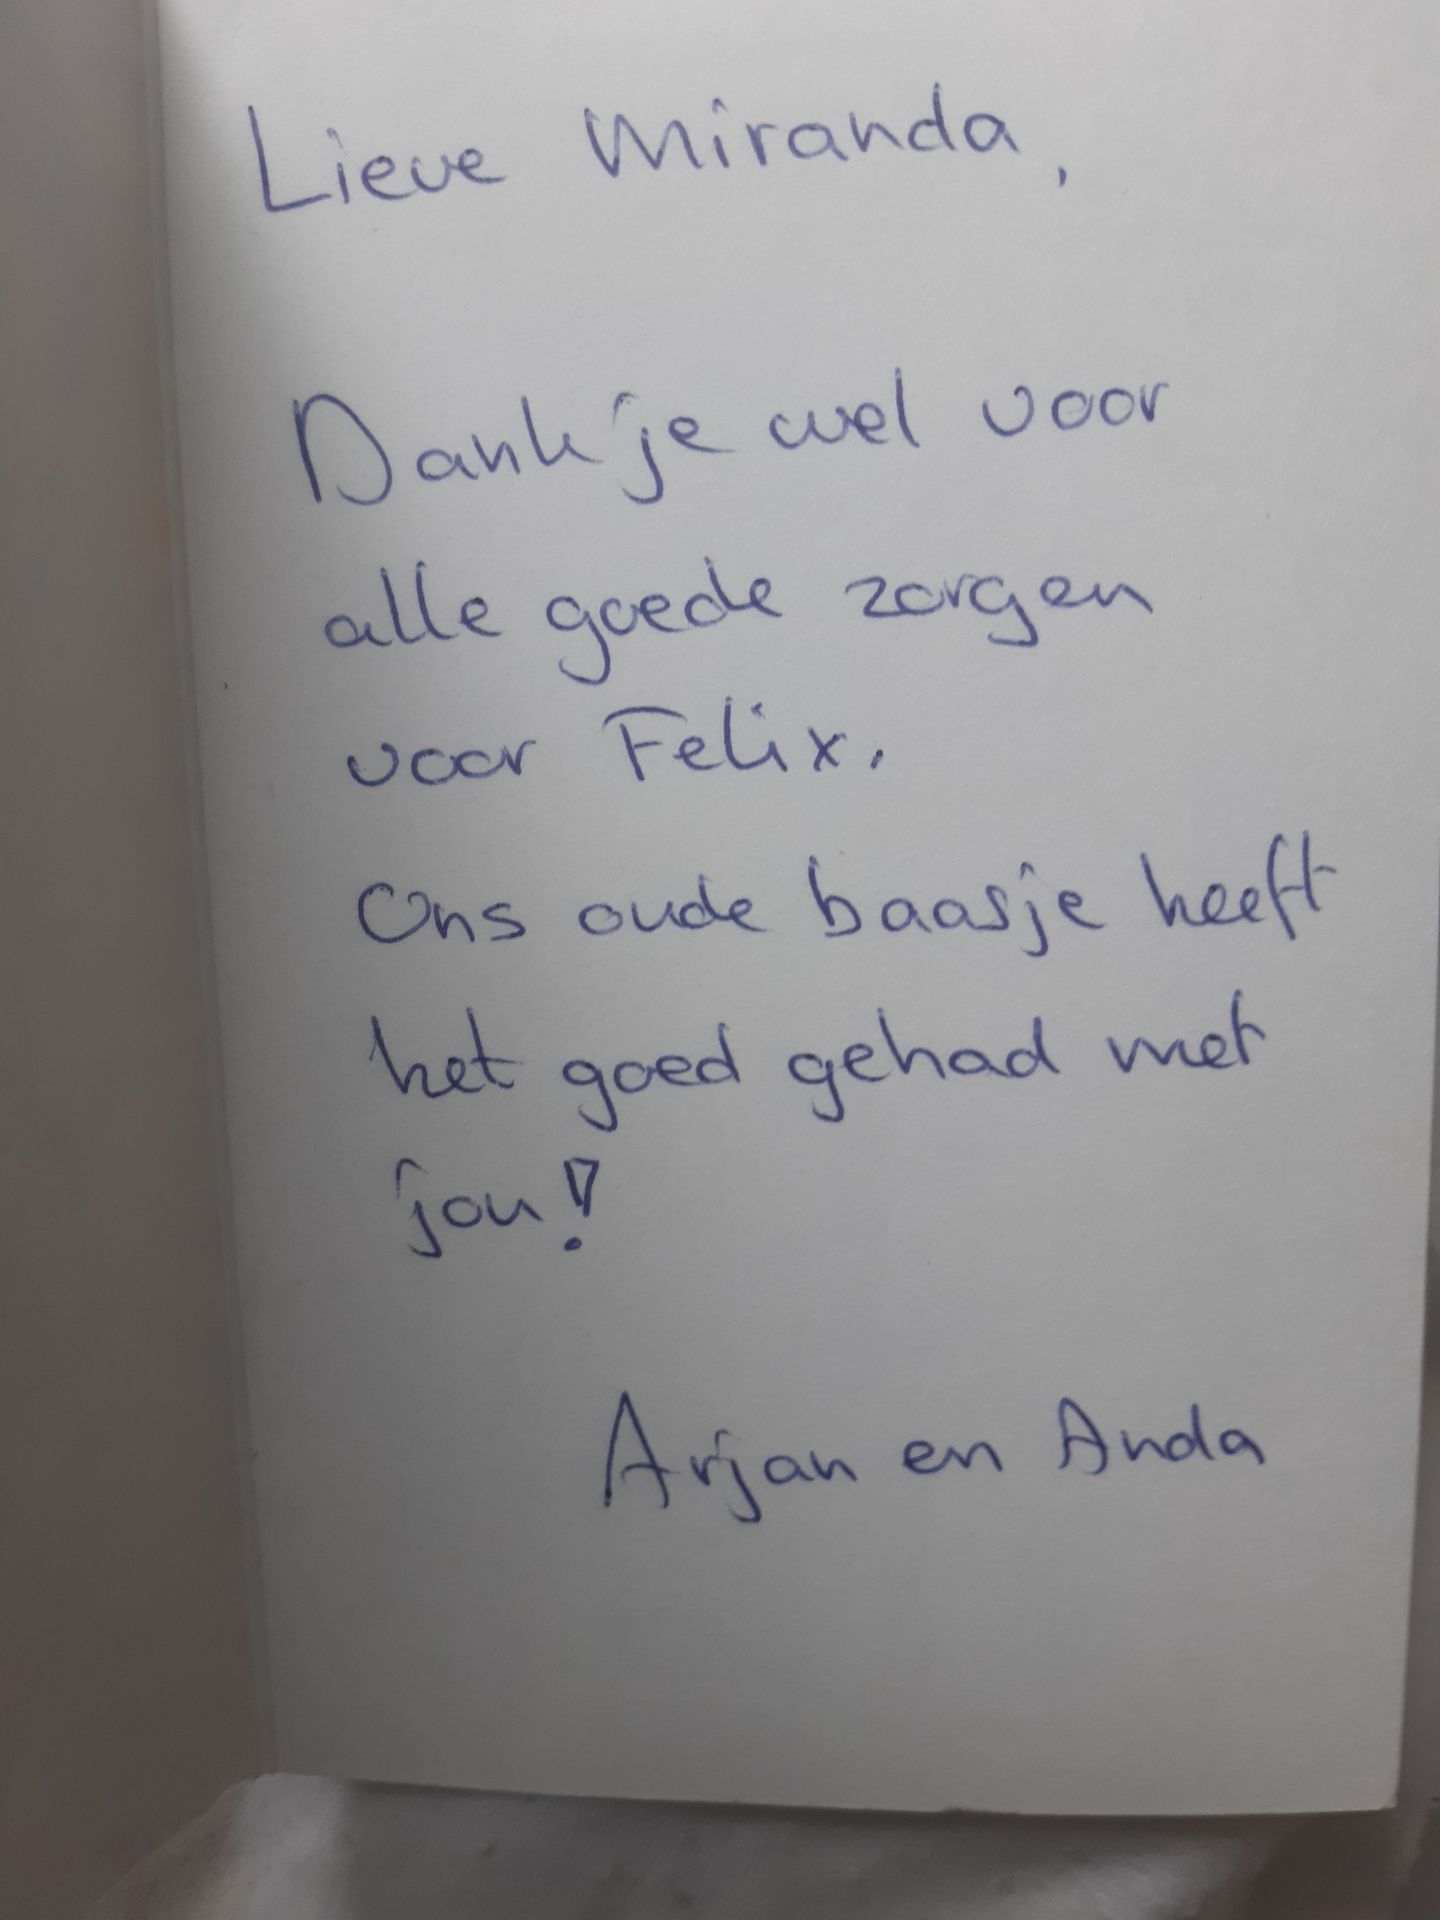 Lieve Miranda,
Dank je wel voor
alle goede zorgen
voor Felix.
Ons oude baasje heeft
het goed gehad met
jou!
Arjan en Anda